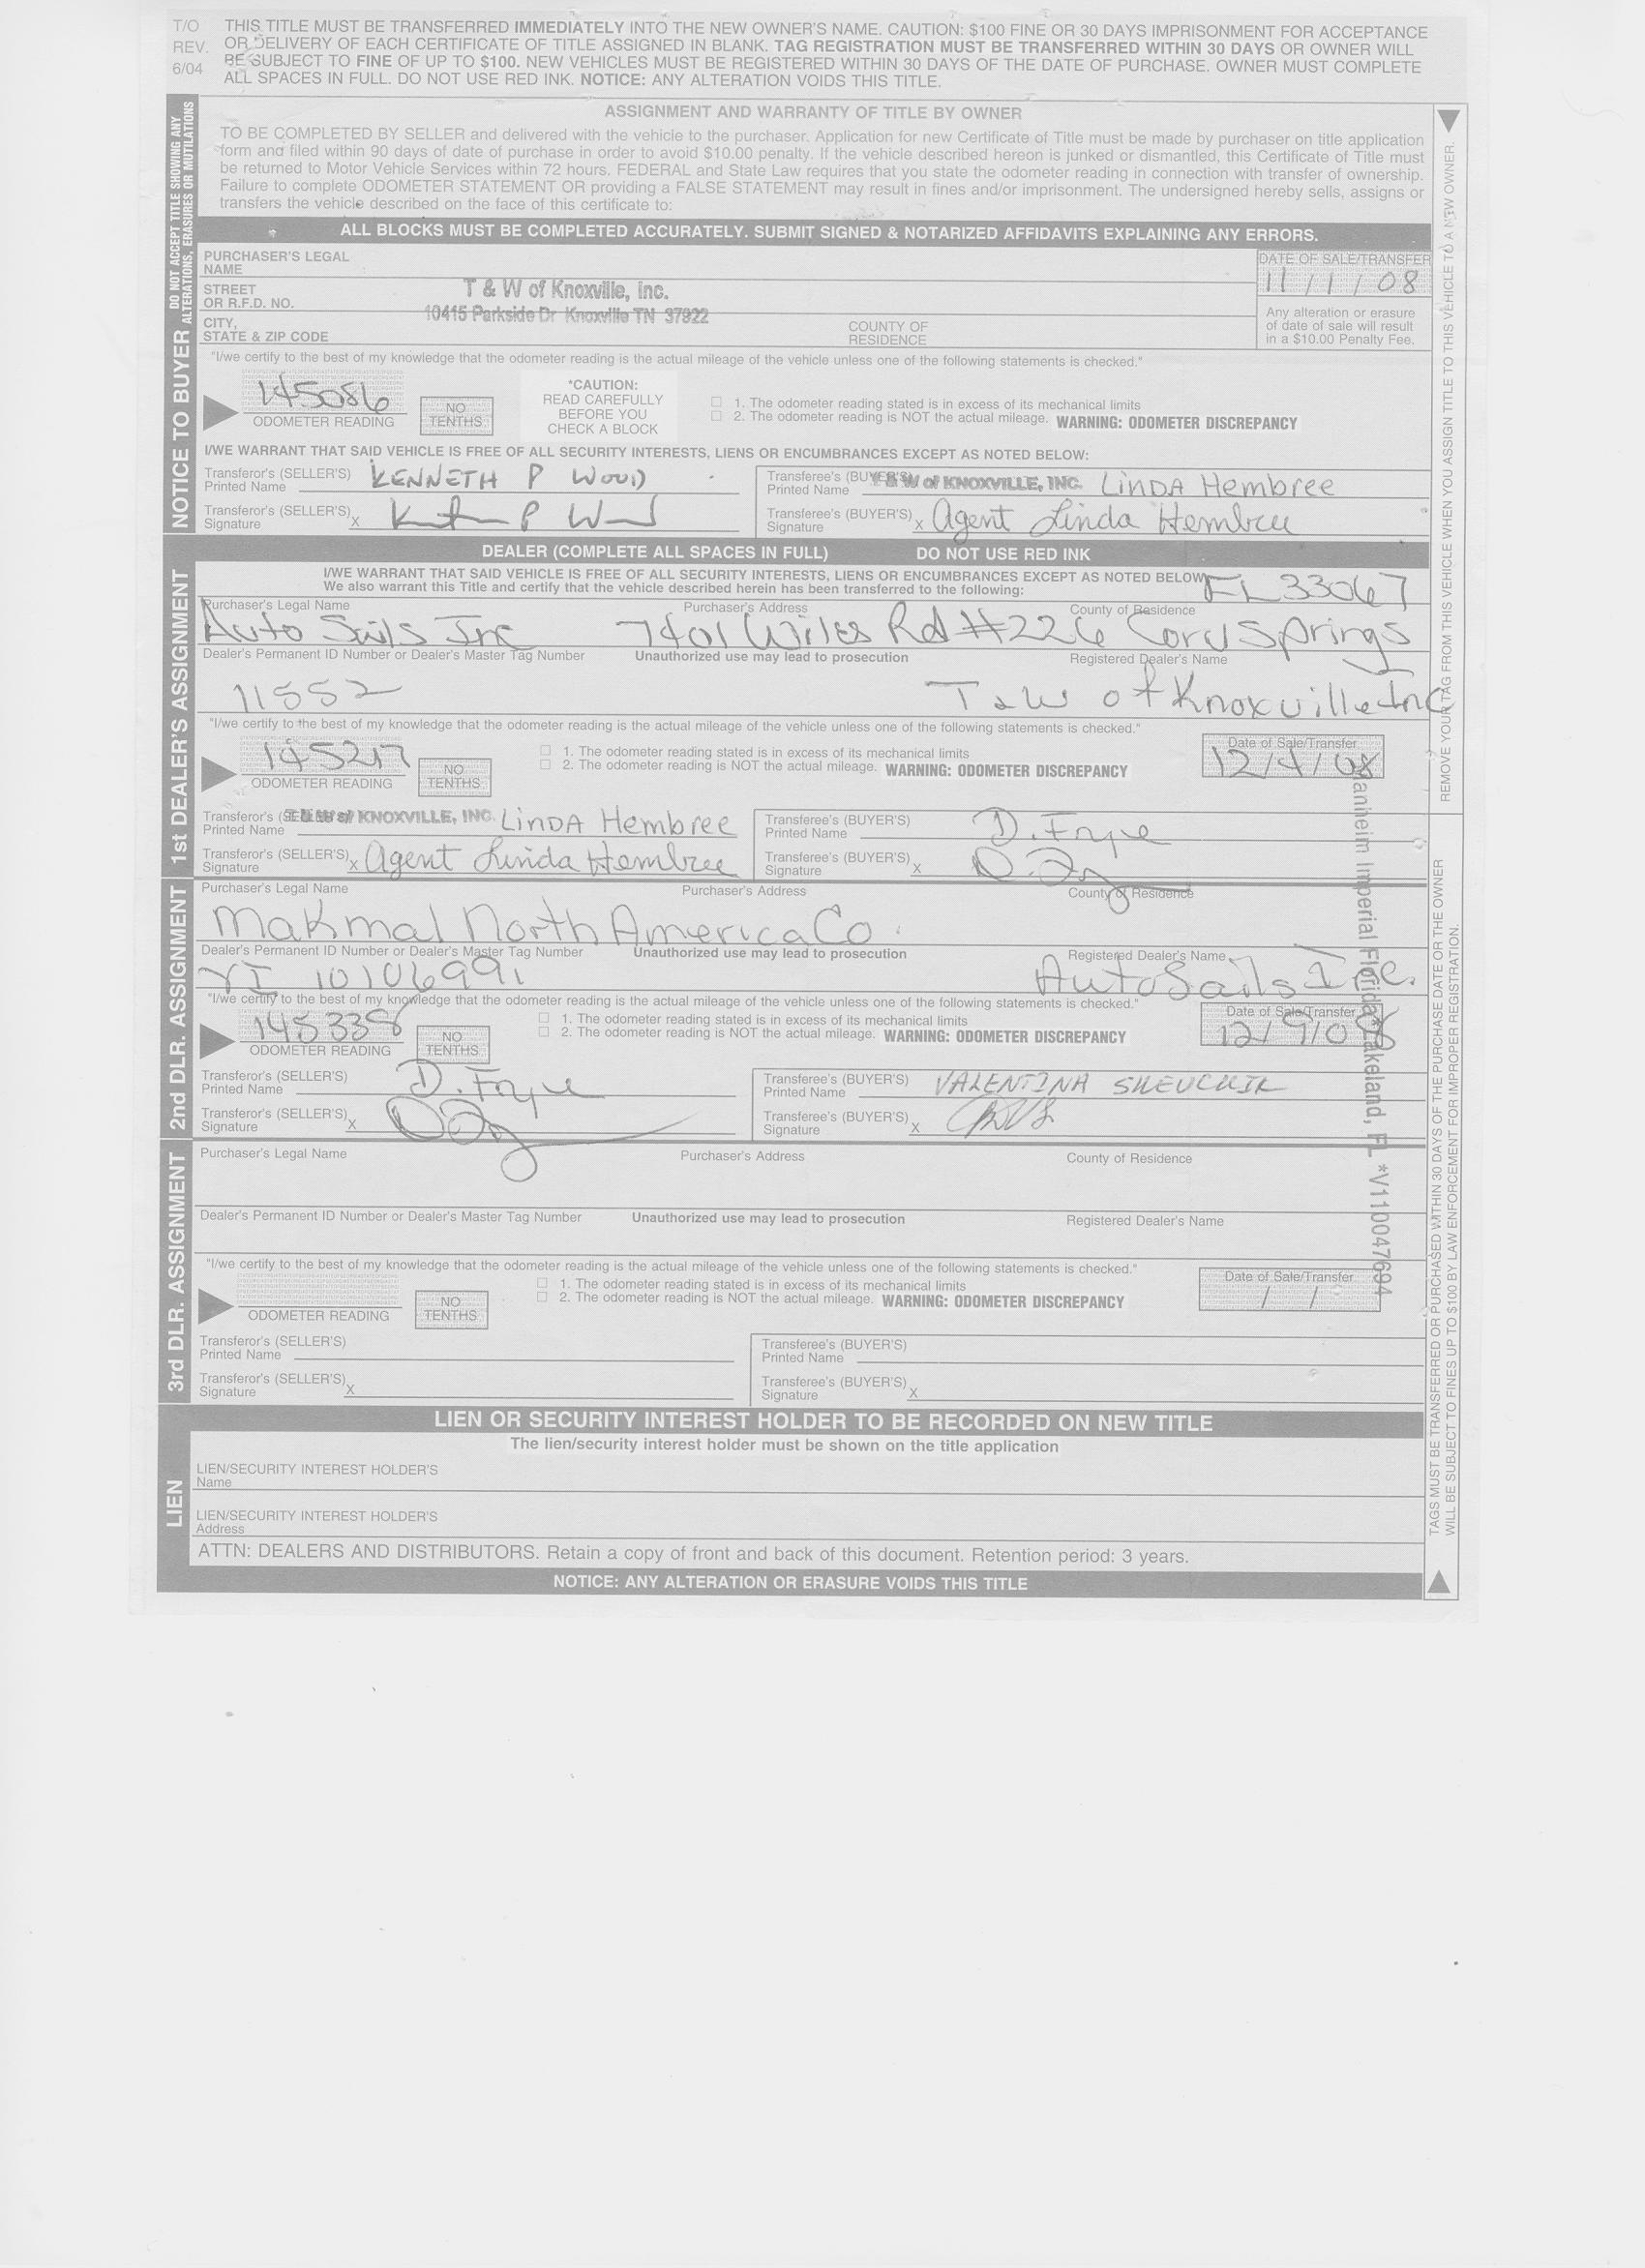 T/O
REV.
6/04
THIS TITLE MUST BE TRANSFERRED IMMEDIATELY INTO THE NEW OWNER'S NAME. CAUTION: $100 FINE OR 30 DAYS IMPRISONMENT FOR ACCEPTANCE
OR DELIVERY OF EACH CERTIFICATE OF TITLE ASSIGNED IN BLANK. TAG REGISTRATION MUST BE TRANSFERRED WITHIN 30 DAYS OR OWNER WILL
BE SUBJECT TO FINE OF UP TO $100. NEW VEHICLES MUST BE REGISTERED WITHIN 30 DAYS OF THE DATE OF PURCHASE. OWNER MUST COMPLETE
ALL SPACES IN FULL. DO NOT USE RED INK. NOTICE: ANY ALTERATION VOIDS THIS TITLE.
NOTICE TO BUYER
DO NOT ACCEPT TITLE SHOWING ANY
ALTERATIONS, ERASURES OR MUTILATIONS
ASSIGNMENT AND WARRANTY OF TITLE BY OWNER
TO BE COMPLETED BY SELLER and delivered with the vehicle to the purchaser. Application for new Certificate of Title must be made by purchaser on title application
form and filed within 90 days of date of purchase in order to avoid $10.00 penalty. If the vehicle described hereon is junked or dismantled, this Certificate of Title must
be returned to Motor Vehicle Services within 72 hours. FEDERAL and State Law requires that you state the odometer reading in connection with transfer of ownership.
Failure to complete ODOMETER STATEMENT OR providing a FALSE STATEMENT may result in fines and/or imprisonment. The undersigned hereby sells, assigns or
transfers the vehicle described on the face of this certificate to:
ALL BLOCKS MUST BE COMPLETED ACCURATELY. SUBMIT SIGNED & NOTARIZED AFFIDAVITS EXPLAINING ANY ERRORS.
PURCHASER'S LEGAL
NAME
DATE OF SALE/TRANSFER
11 / 1 / 08
STREET
OR R.F.D. NO.
T & W of Knoxville, Inc.
10415 Parkside Dr Knoxville TN 37922
CITY,
STATE & ZIP CODE
COUNTY OF
RESIDENCE
Any alteration or erasure
of date of sale will result
in a $10.00 Penalty Fee.
"I/we certify to the best of my knowledge that the odometer reading is the actual mileage of the vehicle unless one of the following statements is checked."
145086
ODOMETER READING
NO
TENTHS
*CAUTION:
READ CAREFULLY
BEFORE YOU
CHECK A BLOCK
☐ 1. The odometer reading stated is in excess of its mechanical limits
☐ 2. The odometer reading is NOT the actual mileage. WARNING: ODOMETER DISCREPANCY
I/WE WARRANT THAT SAID VEHICLE IS FREE OF ALL SECURITY INTERESTS, LIENS OR ENCUMBRANCES EXCEPT AS NOTED BELOW:
Transferor's (SELLER'S)
Printed Name KENNETH P WOOD
Transferee's (BUYER'S)
Printed Name T & W of KNOXVILLE, INC. LINDA Hembree
Transferor's (SELLER'S)
Signature X
Transferee's (BUYER'S)
Signature X Agent Linda Hembree
DEALER (COMPLETE ALL SPACES IN FULL) DO NOT USE RED INK
1st DEALER'S ASSIGNMENT
I/WE WARRANT THAT SAID VEHICLE IS FREE OF ALL SECURITY INTERESTS, LIENS OR ENCUMBRANCES EXCEPT AS NOTED BELOW
We also warrant this Title and certify that the vehicle described herein has been transferred to the following:
FL 33067
Purchaser's Legal Name Purchaser's Address County of Residence
Auto Sails Inc 7401 Wiles Rd #226 Corul Springs
Dealer's Permanent ID Number or Dealer's Master Tag Number Unauthorized use may lead to prosecution Registered Dealer's Name
11552 T&W of Knoxville Inc
"I/we certify to the best of my knowledge that the odometer reading is the actual mileage of the vehicle unless one of the following statements is checked."
145217
ODOMETER READING
NO
TENTHS
☐ 1. The odometer reading stated is in excess of its mechanical limits
☐ 2. The odometer reading is NOT the actual mileage. WARNING: ODOMETER DISCREPANCY
Date of Sale/Transfer
12/4/08
Transferor's (SELLER'S)
Printed Name T & W of KNOXVILLE, INC. LINDA Hembree
Transferee's (BUYER'S)
Printed Name D. Frye
Transferor's (SELLER'S)
Signature X Agent Linda Hembree
Transferee's (BUYER'S)
Signature X
2nd DLR. ASSIGNMENT
Purchaser's Legal Name Purchaser's Address County of Residence
Makmal North America Co.
Dealer's Permanent ID Number or Dealer's Master Tag Number Unauthorized use may lead to prosecution Registered Dealer's Name
VI 10106991 Auto Sails Inc.
"I/we certify to the best of my knowledge that the odometer reading is the actual mileage of the vehicle unless one of the following statements is checked."
145338
ODOMETER READING
NO
TENTHS
☐ 1. The odometer reading stated is in excess of its mechanical limits
☐ 2. The odometer reading is NOT the actual mileage. WARNING: ODOMETER DISCREPANCY
Date of Sale/Transfer
12/9/08
Transferor's (SELLER'S)
Printed Name D. Frye
Transferee's (BUYER'S)
Printed Name VALENTINA
Transferor's (SELLER'S)
Signature X
Transferee's (BUYER'S)
Signature X
3rd DLR. ASSIGNMENT
Purchaser's Legal Name Purchaser's Address County of Residence
Dealer's Permanent ID Number or Dealer's Master Tag Number Unauthorized use may lead to prosecution Registered Dealer's Name
"I/we certify to the best of my knowledge that the odometer reading is the actual mileage of the vehicle unless one of the following statements is checked."
ODOMETER READING
NO
TENTHS
☐ 1. The odometer reading stated is in excess of its mechanical limits
☐ 2. The odometer reading is NOT the actual mileage. WARNING: ODOMETER DISCREPANCY
Date of Sale/Transfer
/ /
Transferor's (SELLER'S)
Printed Name
Transferee's (BUYER'S)
Printed Name
Transferor's (SELLER'S)
Signature X
Transferee's (BUYER'S)
Signature X
Manheim Imperial Florida*Lakeland, FL *V110047694
LIEN
LIEN OR SECURITY INTEREST HOLDER TO BE RECORDED ON NEW TITLE
The lien/security interest holder must be shown on the title application
LIEN/SECURITY INTEREST HOLDER'S
Name
LIEN/SECURITY INTEREST HOLDER'S
Address
ATTN: DEALERS AND DISTRIBUTORS. Retain a copy of front and back of this document. Retention period: 3 years.
NOTICE: ANY ALTERATION OR ERASURE VOIDS THIS TITLE
REMOVE YOUR TAG FROM THIS VEHICLE WHEN YOU ASSIGN TITLE TO THIS VEHICLE TO A NEW OWNER.
TAGS MUST BE TRANSFERRED OR PURCHASED WITHIN 30 DAYS OF THE PURCHASE DATE OR THE OWNER
WILL BE SUBJECT TO FINES UP TO $100 BY LAW ENFORCEMENT FOR IMPROPER REGISTRATION.